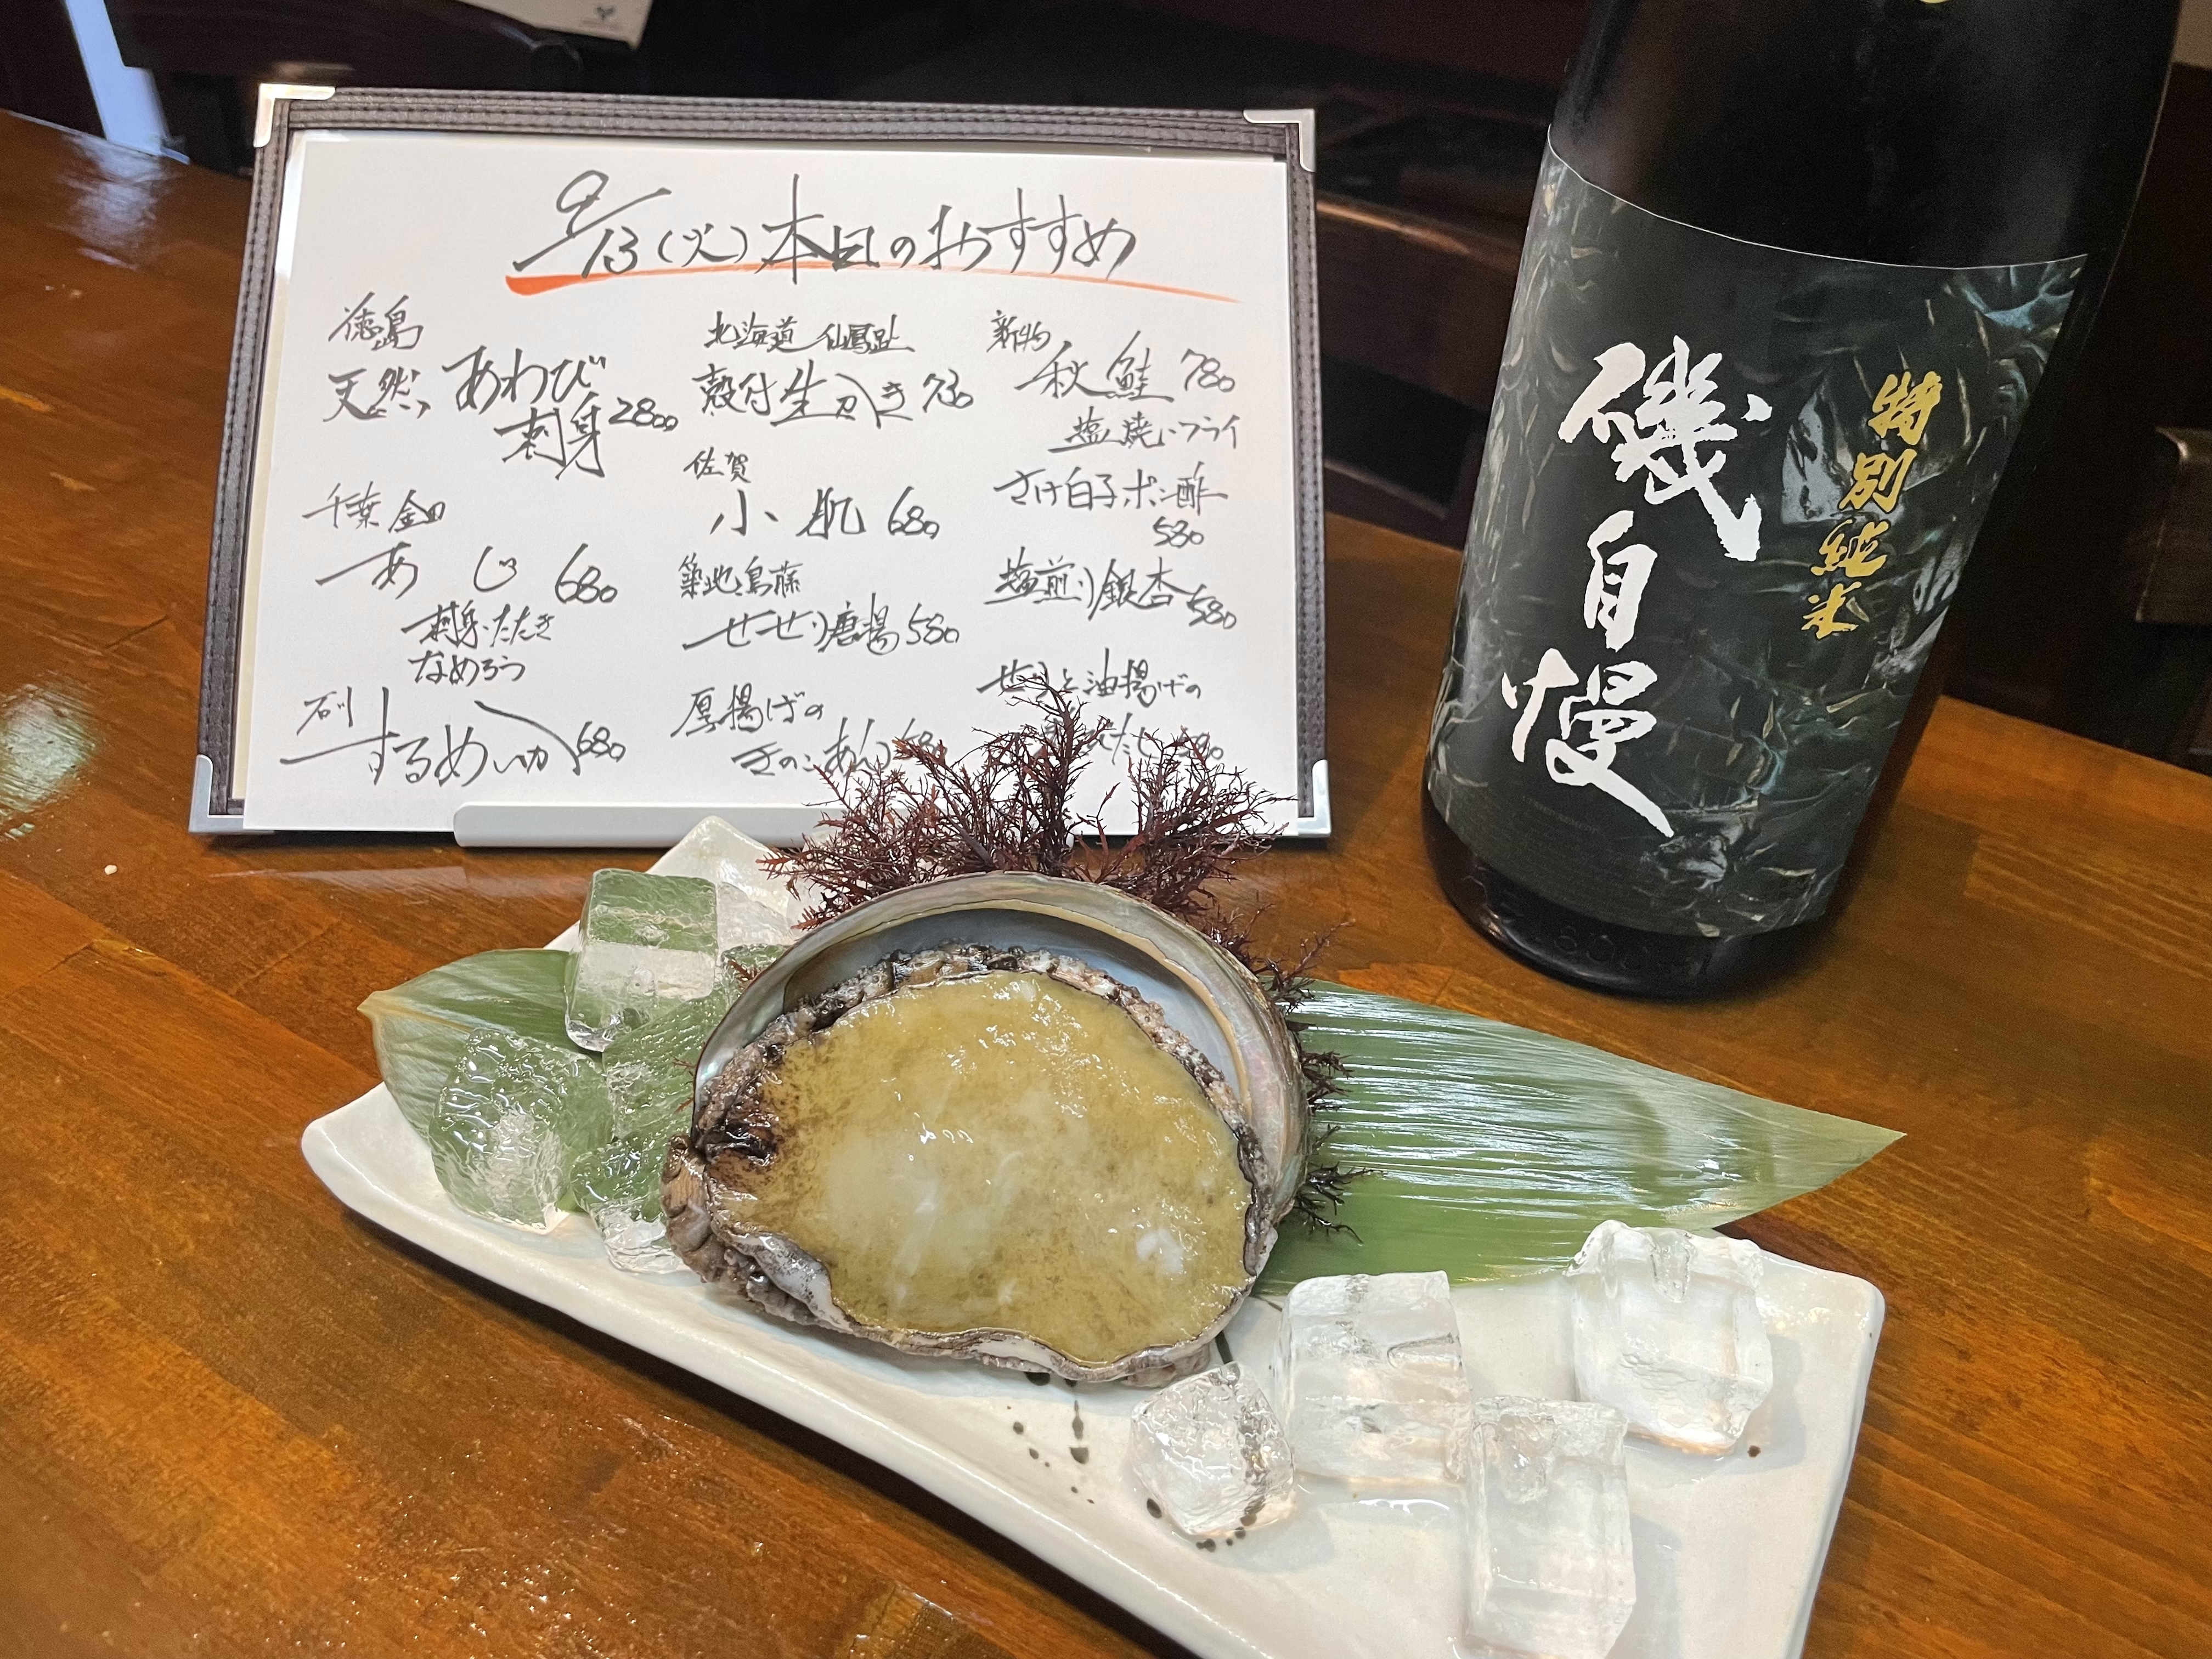 9/13(火)本日のおすすめ
徳島
天然あわび
刺身2800
千葉 金田
あじ 680
刺身・たたき
なめろう
石川
するめいか 680
北海道 仙鳳趾
殻付生がき 730
佐賀
小肌 680
築地鳥藤
せせり唐揚 580
厚揚げの
きのこあん 680
新物
秋鮭 780
塩焼・フライ
さけ白子ポン酢
580
塩煎り銀杏 580
せりと油揚げの
たし
特別純米
磯自慢